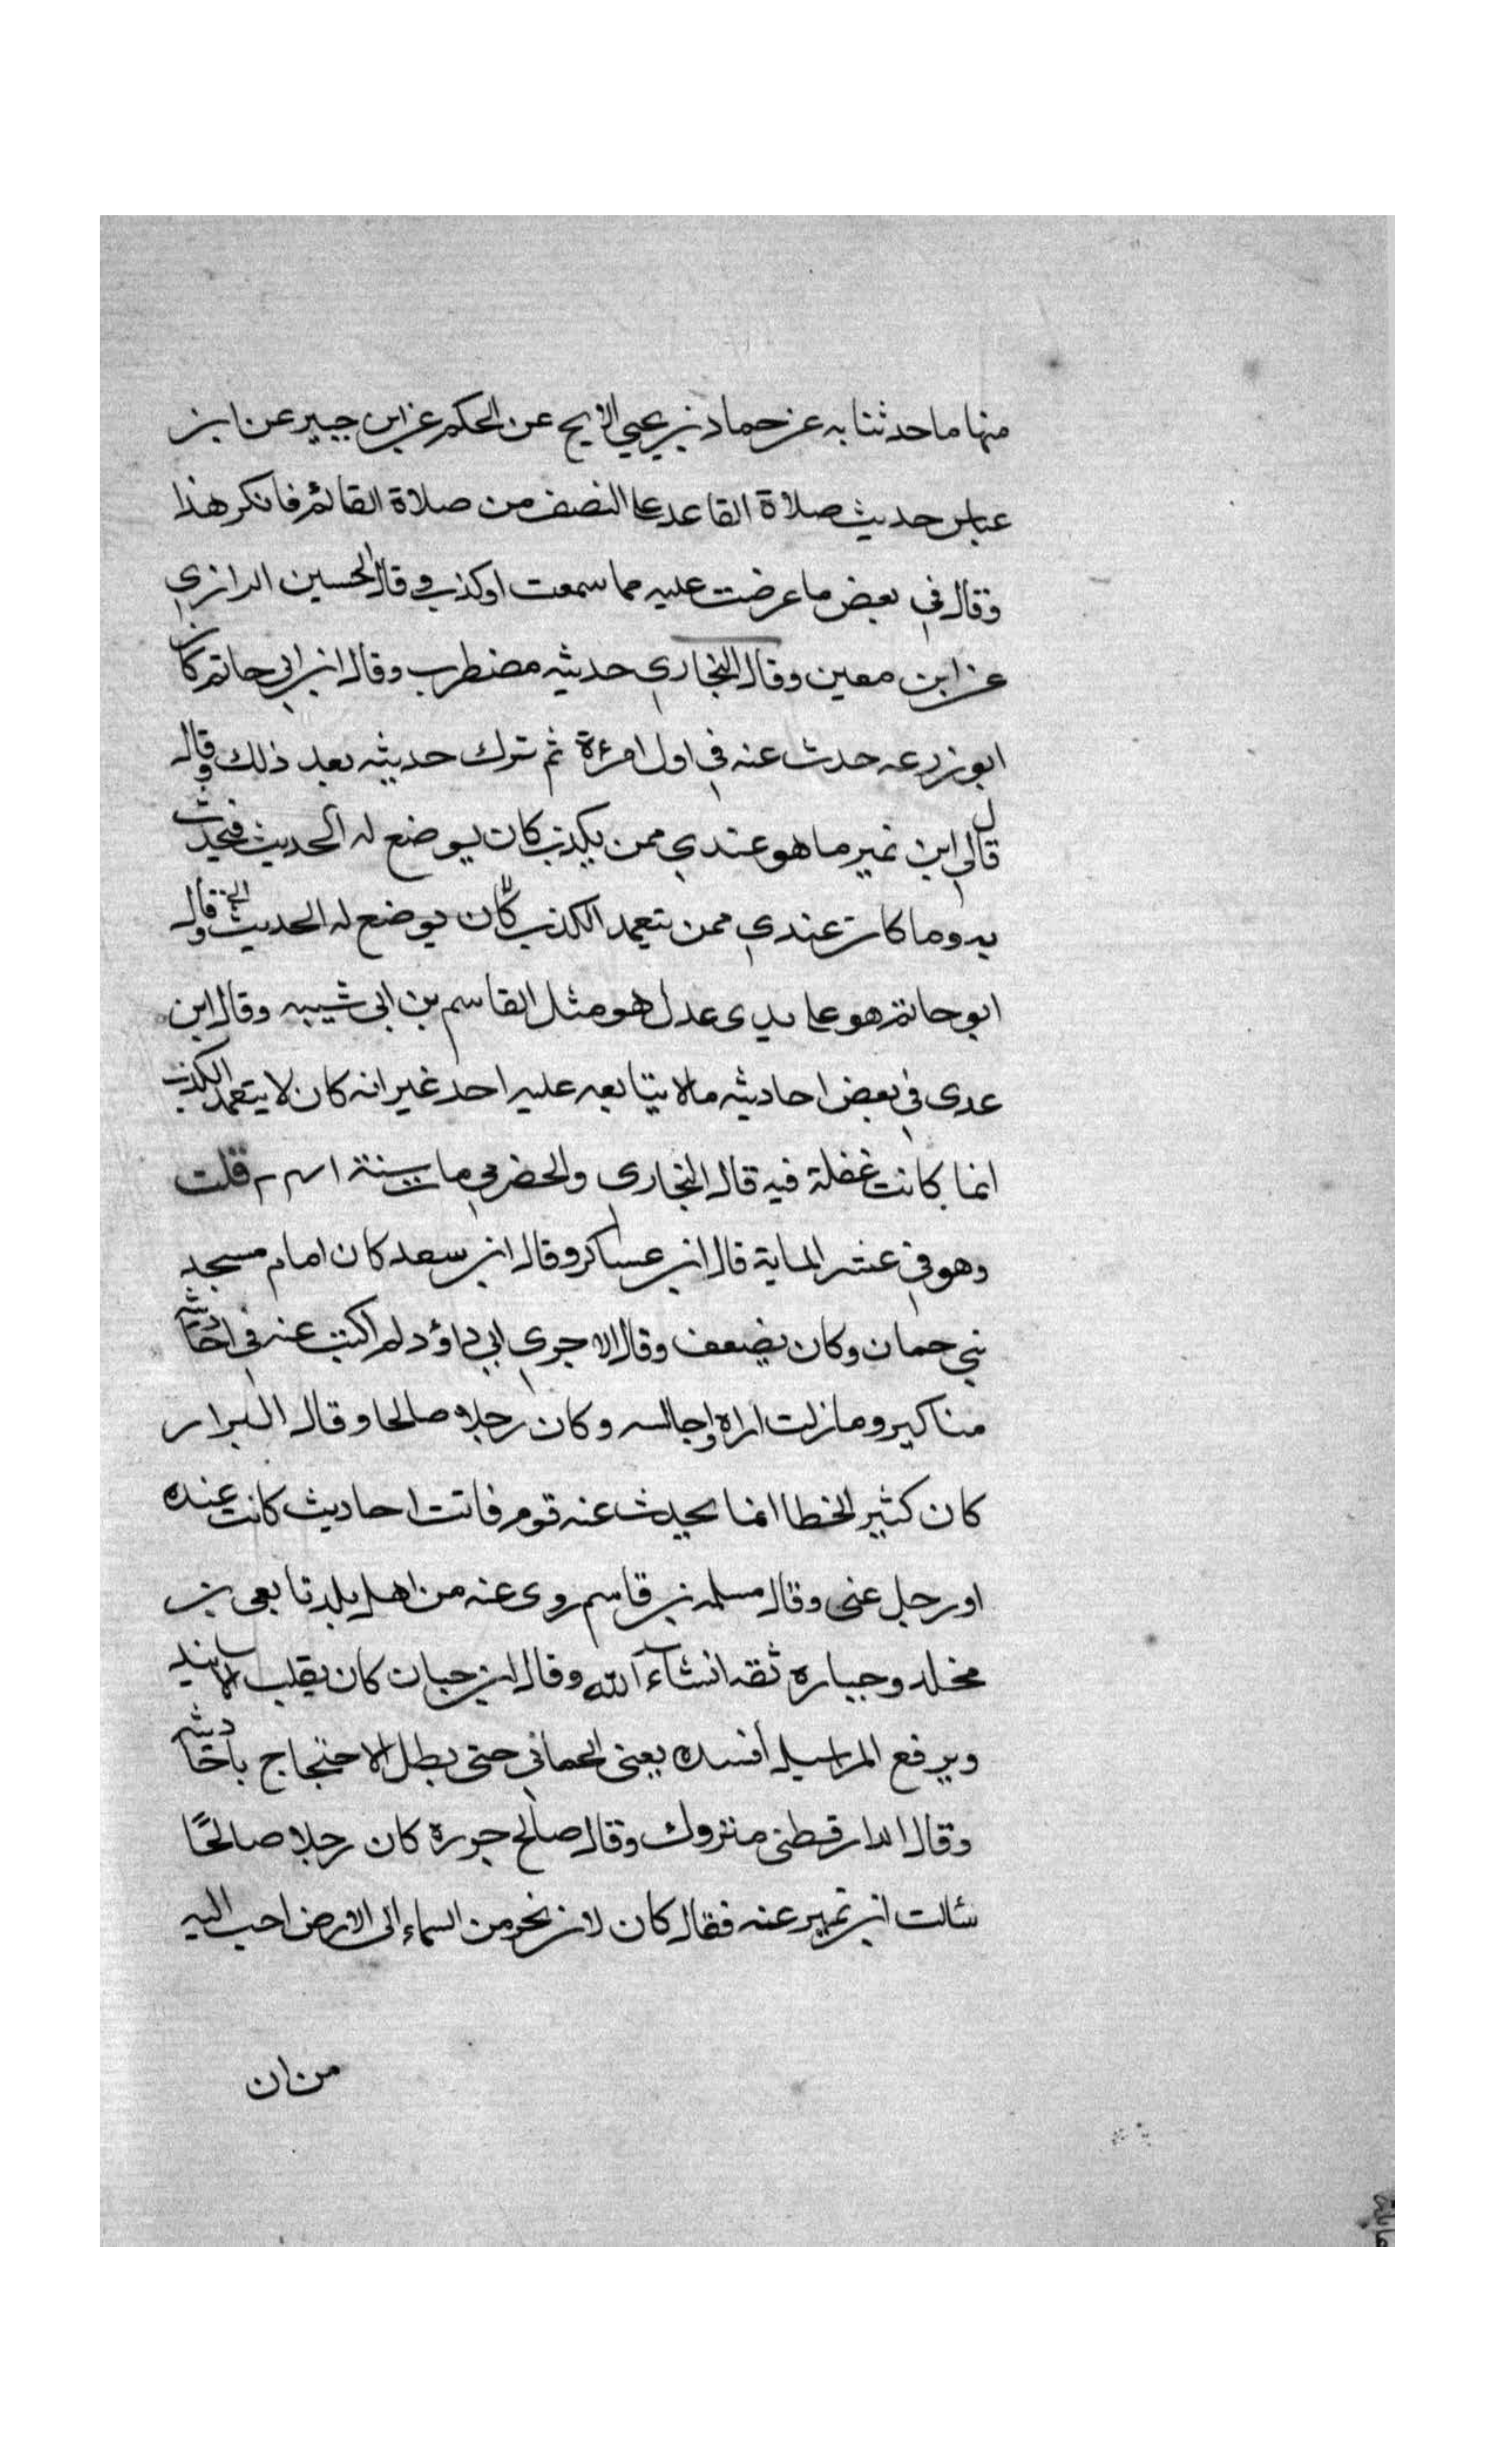 منها ما حدثنا به عن حماد بن يحيي الابح عن الحكم عن ابن جبير عن ابن
عباس حديث صلاة القاعد علي النصف من صلاة القائم فانكر هذا
وقال في بعض ما عرضت عليه مما سمعت او كذب وقال الحسين الرازي
عن ابن معين وقال البخاري حديثه مضطرب وقال ابن ابي حاتم كان
ابو زرعه حدث عنه في اول امرءة ثم ترك حديثه بعد ذلك وقال
قال لي ابن نمير ما هو عندي ممن يكذب كان يوضع له الحديث فيحدث
به وما كان عندي ممن يتعمد الكذب كان يوضع له الحديث وقال
ابو حاتم هو علي يدي عدل هو مثل القاسم بن ابي شيبه وقال ابن
عدى في بعض احاديثه ما لا يتابعه عليه احد غير انه كان لا يتعمد الكذب
انما كانت غفلة فيه قال البخارى والحضرمي مات سنة قلت
وهو في عشر الماية قال ابن عساكر وقال ابن سعد كان امام مسجد
بني حمان وكان يضعف وقال الاجري ابي داؤد لم اكتب عنه في احاديثه
مناكير وما زلت اراه واجالسه وكان رجلا صالحا وقال البزار
كان كثير الخطا انما يحدث عنه قوم فاتت احاديث كانت عنده
او رجل غبى وقال مسلمه بن قاسم روى عنه من اهل بلدنا بقى بن
مخلد وجباره ثقه انشاء الله وقال ابن حبان كان يقلب الاسانيد
ويرفع المراسيل أفسده يعنى الحماني حتى بطل الاحتجاج باحاديثه
وقال الدارقطنى متروك وقال صالح جزرة كان رجلا صالحًا
سئالت ابن نمير عنه فقال كان لان نخر من السماء الى الارض احب اليه
من ان